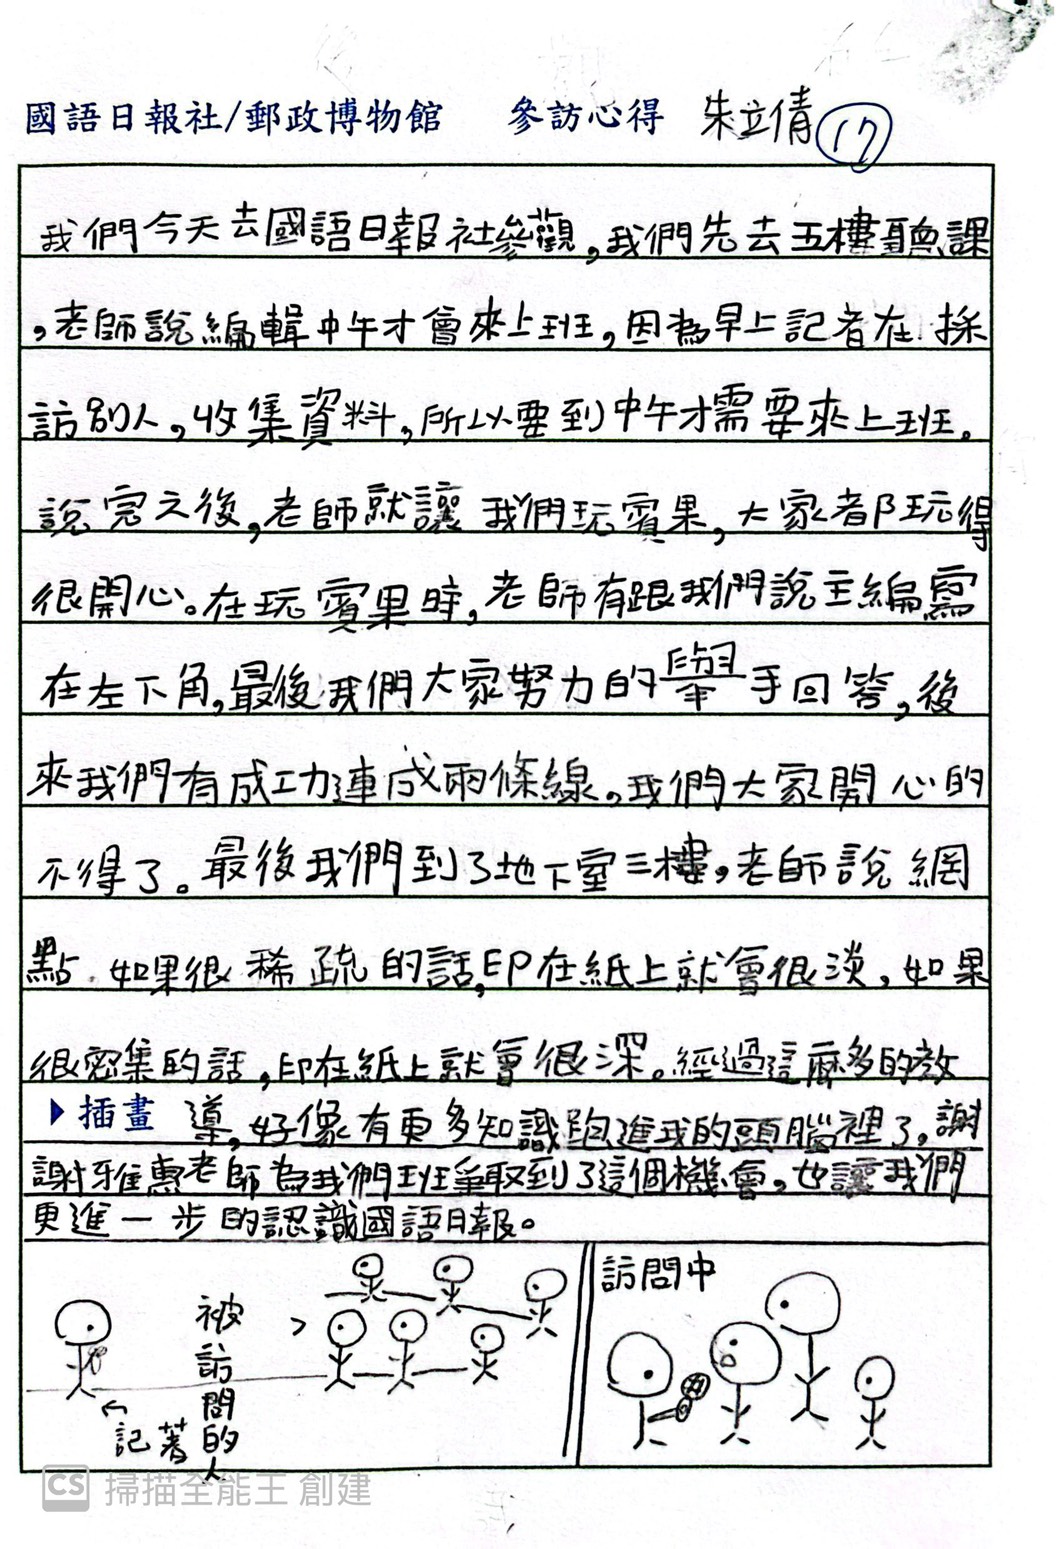 國語日報社/郵政博物館 參訪心得 朱立倩 17
我們今天去國語日報社參觀,我們先去五樓聽課
,老師說編輯中午才會來上班,因為早上記者在採
訪別人,收集資料,所以要到中午才需要來上班。
說完之後,老師就讓我們玩賓果,大家都玩得
很開心。在玩賓果時,老師有跟我們說主編需
在左下角,最後我們大家努力的舉手回答,後
來我們有成功連成兩條線。我們大家開心的
不得了。最後我們到了地下室三樓,老師說網
點.如果很稀疏的話,印在紙上就會很淡,如果
很密集的話,印在紙上就會很深。經過這麼多的教
▶插畫 導,好像有更多知識跑進我的頭腦裡了。謝
謝雅惠老師為我們班爭取到了這個機會,也讓我們
更進一步的認識國語日報。
訪問中
被訪問的人
記著
CS 掃描全能王 創建